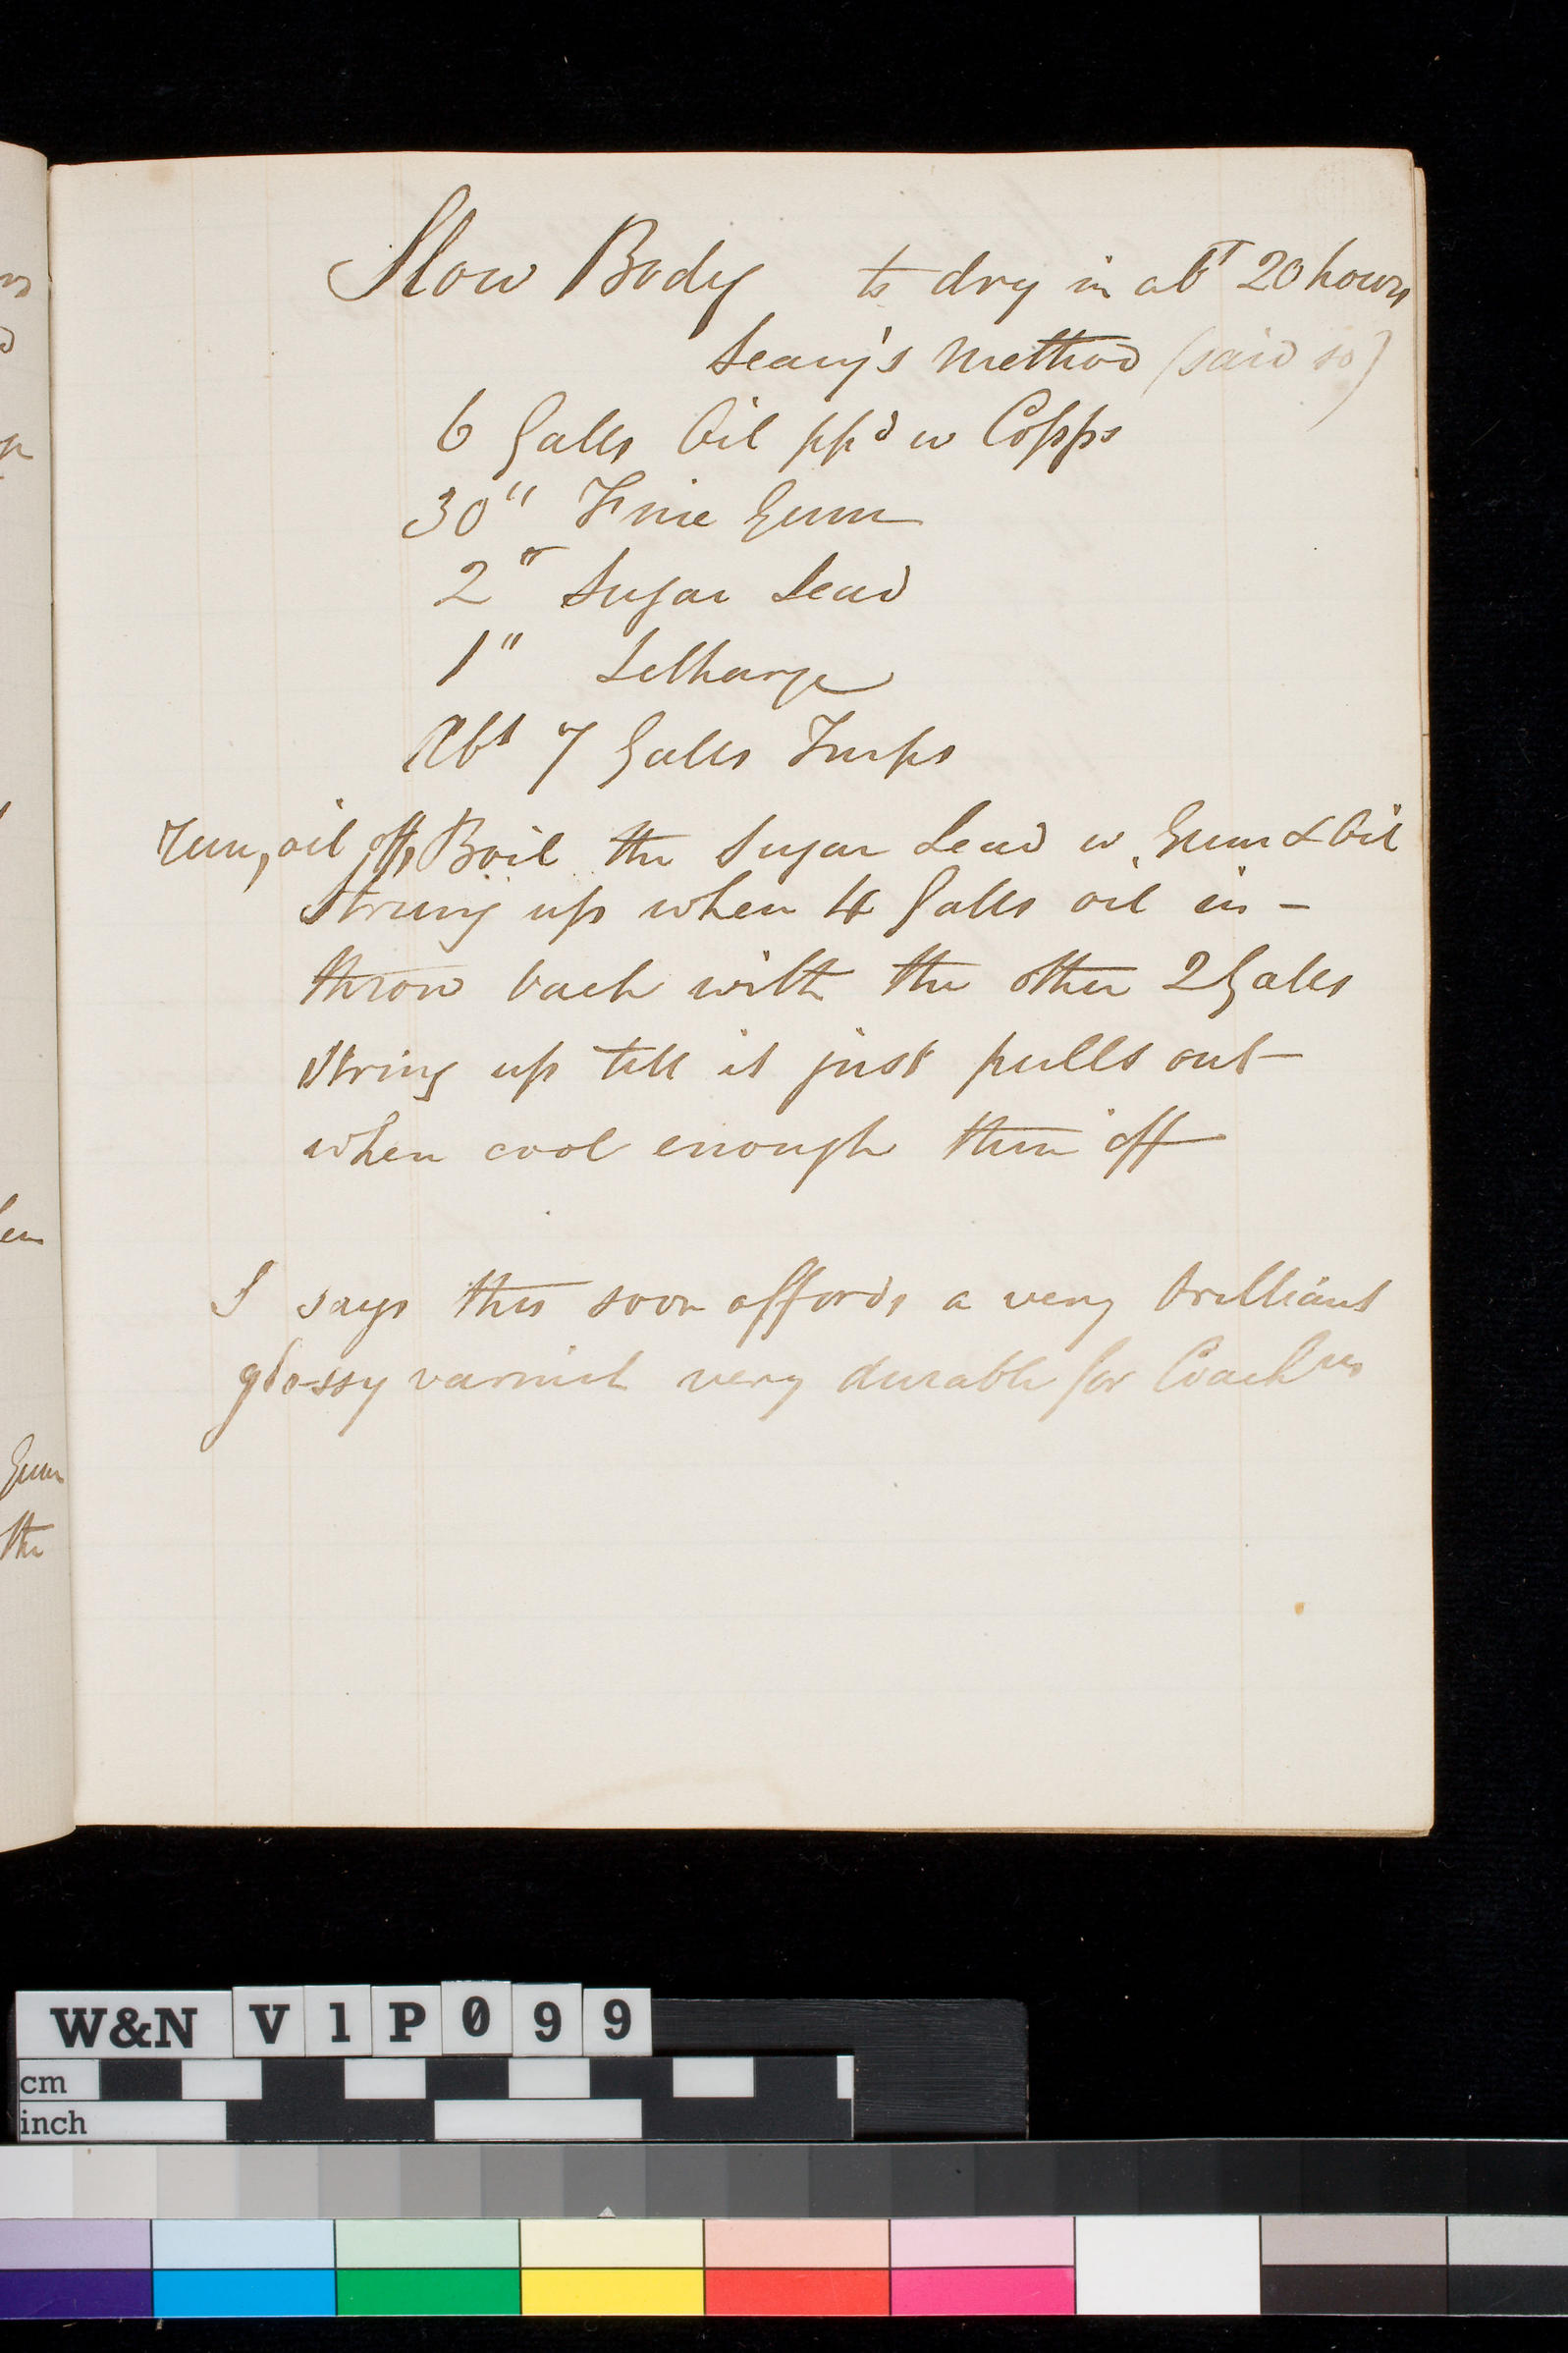 Slow Body to dry in abt 20 hours
Leary's Method (said so)
6 Galls Oil ppd w Copps
30 " Fine Gum
2 " Sugar Lead
1 " Litharge
Abt 7 Galls Turps
Run, oil off, Boil the Sugar Lead w Gum & Oil
String up when 4 Galls oil in -
throw back with the other 2 Galls
String up till it just pulls out
when cool enough thin off
L says this soon affords a very brilliant
glossy varnish very durable for Coaches
en
Gum
the
W&N V1P099
cm
inch